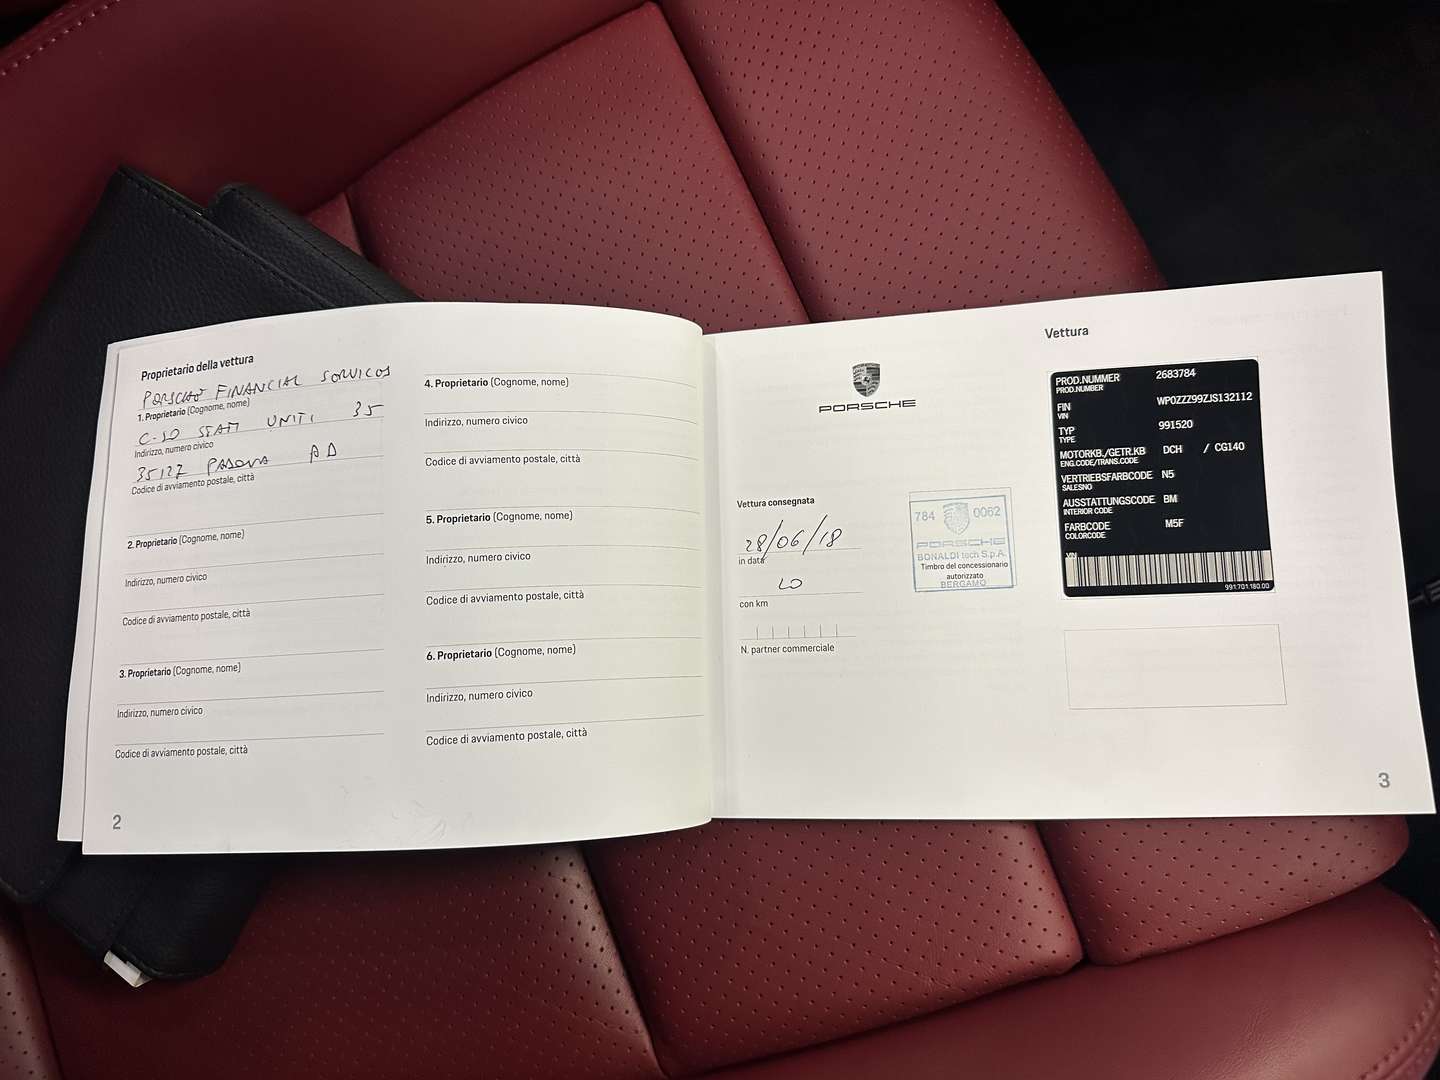 Proprietario della vettura
PORSCHE FINANCIAL SERVICES
1. Proprietario (Cognome, nome)
C.SO STATI UNITI 35
Indirizzo, numero civico
35127 PADOVA PD
Codice di avviamento postale, città
2. Proprietario (Cognome, nome)
Indirizzo, numero civico
Codice di avviamento postale, città
3. Proprietario (Cognome, nome)
Indirizzo, numero civico
Codice di avviamento postale, città
2
4. Proprietario (Cognome, nome)
Indirizzo, numero civico
Codice di avviamento postale, città
5. Proprietario (Cognome, nome)
Indirizzo, numero civico
Codice di avviamento postale, città
6. Proprietario (Cognome, nome)
Indirizzo, numero civico
Codice di avviamento postale, città
PORSCHE
Vettura consegnata
28/06/18
in data
con km
N. partner commerciale
784 0062
PORSCHE
BONALDI tech S.p.A.
Timbro del concessionario
autorizzato
BERGAMO
Vettura
PROD.NUMMER 2683784
PROD.NUMBER
FIN WP0ZZZ99ZJS132112
VIN
TYP 991520
TYPE
MOTORKB./GETR.KB DCH / CG140
ENG.CODE/TRANS.CODE
VERTRIEBSFARBCODE N5
SALESNO
AUSSTATTUNGSCODE BM
INTERIOR CODE
FARBCODE M5F
COLORCODE
VIN
991 701 180 00
3